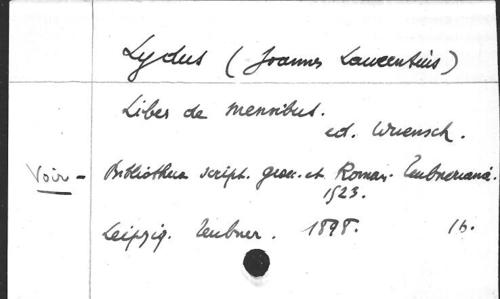 Lydus (Joannes Laurentius)
Liber de mensibus.
ed. Wuensch.
Voir - Bibliotheca script. graec. et Roman. Teubneriana.
1523.
Leipzig. Teubner. 1898. 16.